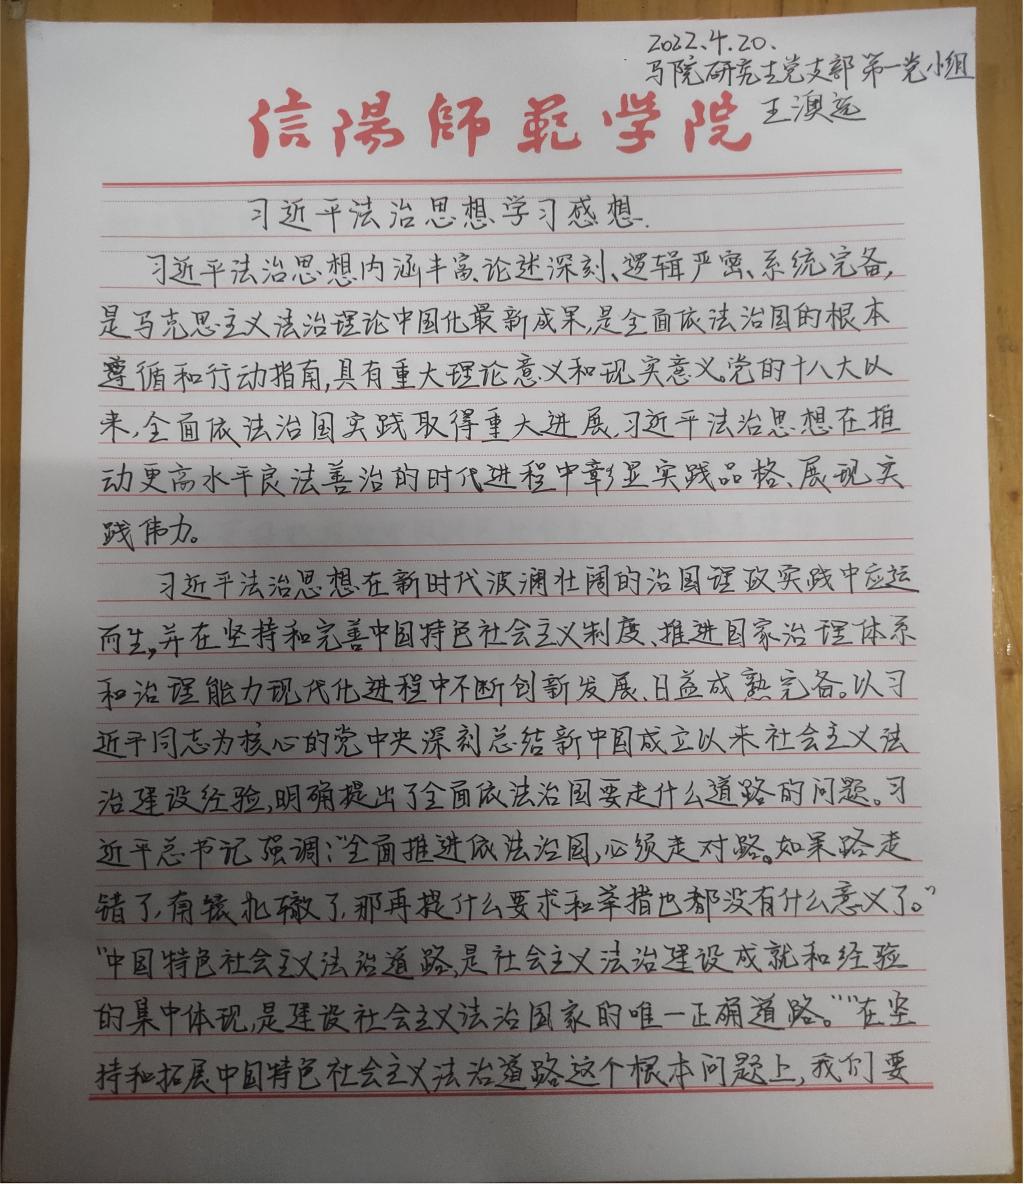 2022.4.20.
马院研究生党支部第一党小组
王澳运
信陽師範学院
习近平法治思想学习感想.
习近平法治思想内涵丰富、论述深刻、逻辑严密、系统完备,
是马克思主义法治理论中国化最新成果,是全面依法治国的根本
遵循和行动指南,具有重大理论意义和现实意义。党的十八大以
来,全面依法治国实践取得重大进展,习近平法治思想在推
动更高水平良法善治的时代进程中彰显实践品格、展现实
践伟力。
习近平法治思想在新时代波澜壮阔的治国理政实践中应运
而生,并在坚持和完善中国特色社会主义制度、推进国家治理体系
和治理能力现代化进程中不断创新发展、日益成熟完备。以习
近平同志为核心的党中央深刻总结新中国成立以来社会主义法
治建设经验,明确提出了全面依法治国要走什么道路的问题。习
近平总书记强调:“全面推进依法治国,必须走对路。如果路走
错了,南辕北辙了,那再提什么要求和举措也都没有什么意义了。”
“中国特色社会主义法治道路,是社会主义法治建设成就和经验
的集中体现,是建设社会主义法治国家的唯一正确道路。”“在坚
持和拓展中国特色社会主义法治道路这个根本问题上,我们要